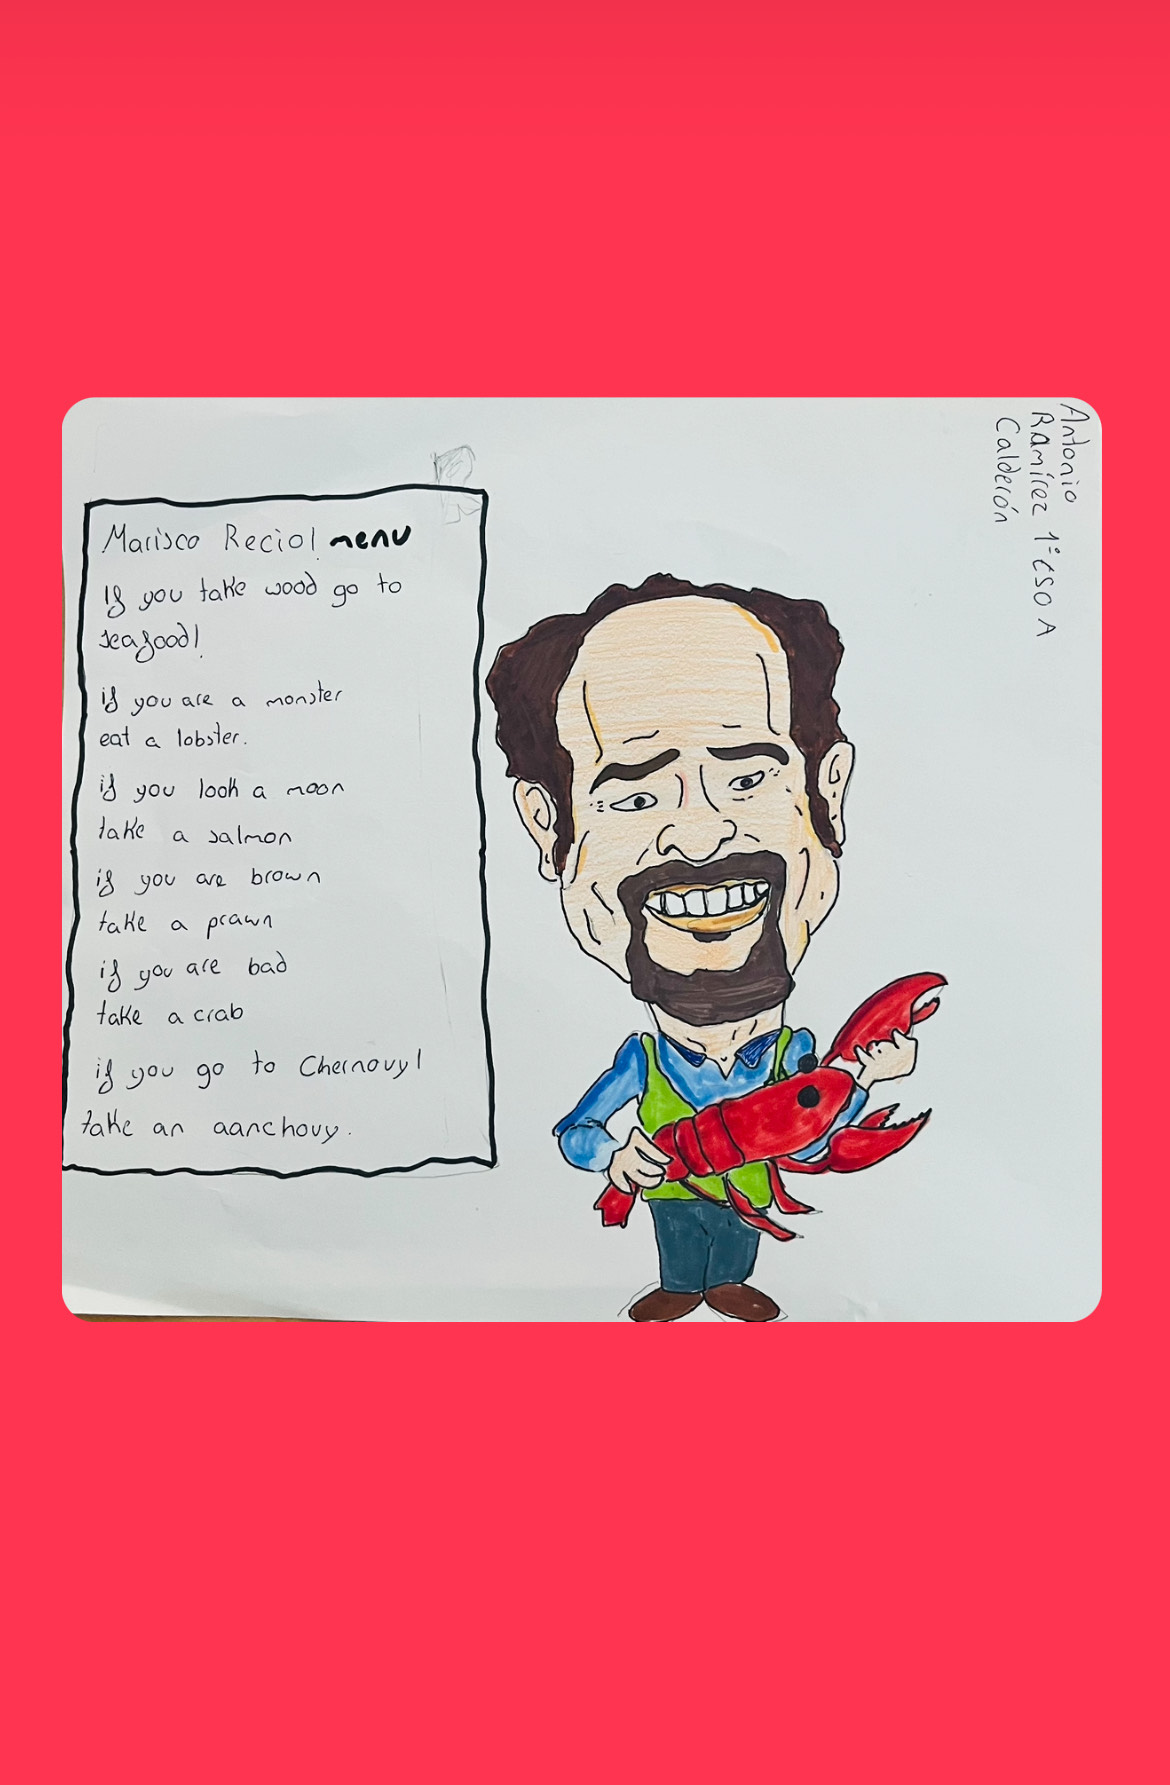 Marisco Recio! menu
If you take wood go to
seafood!
if you are a monster
eat a lobster.
if you look a moon
take a salmon
if you are brown
take a prawn
if you are bad
take a crab
if you go to Chernovyl
take an aanchovy.
Antonio
Ramírez 1º ESO A
Calderón